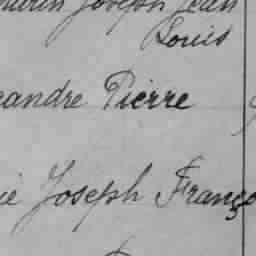 Joseph Jean
Louis
andre Pierre
ie Joseph Franço